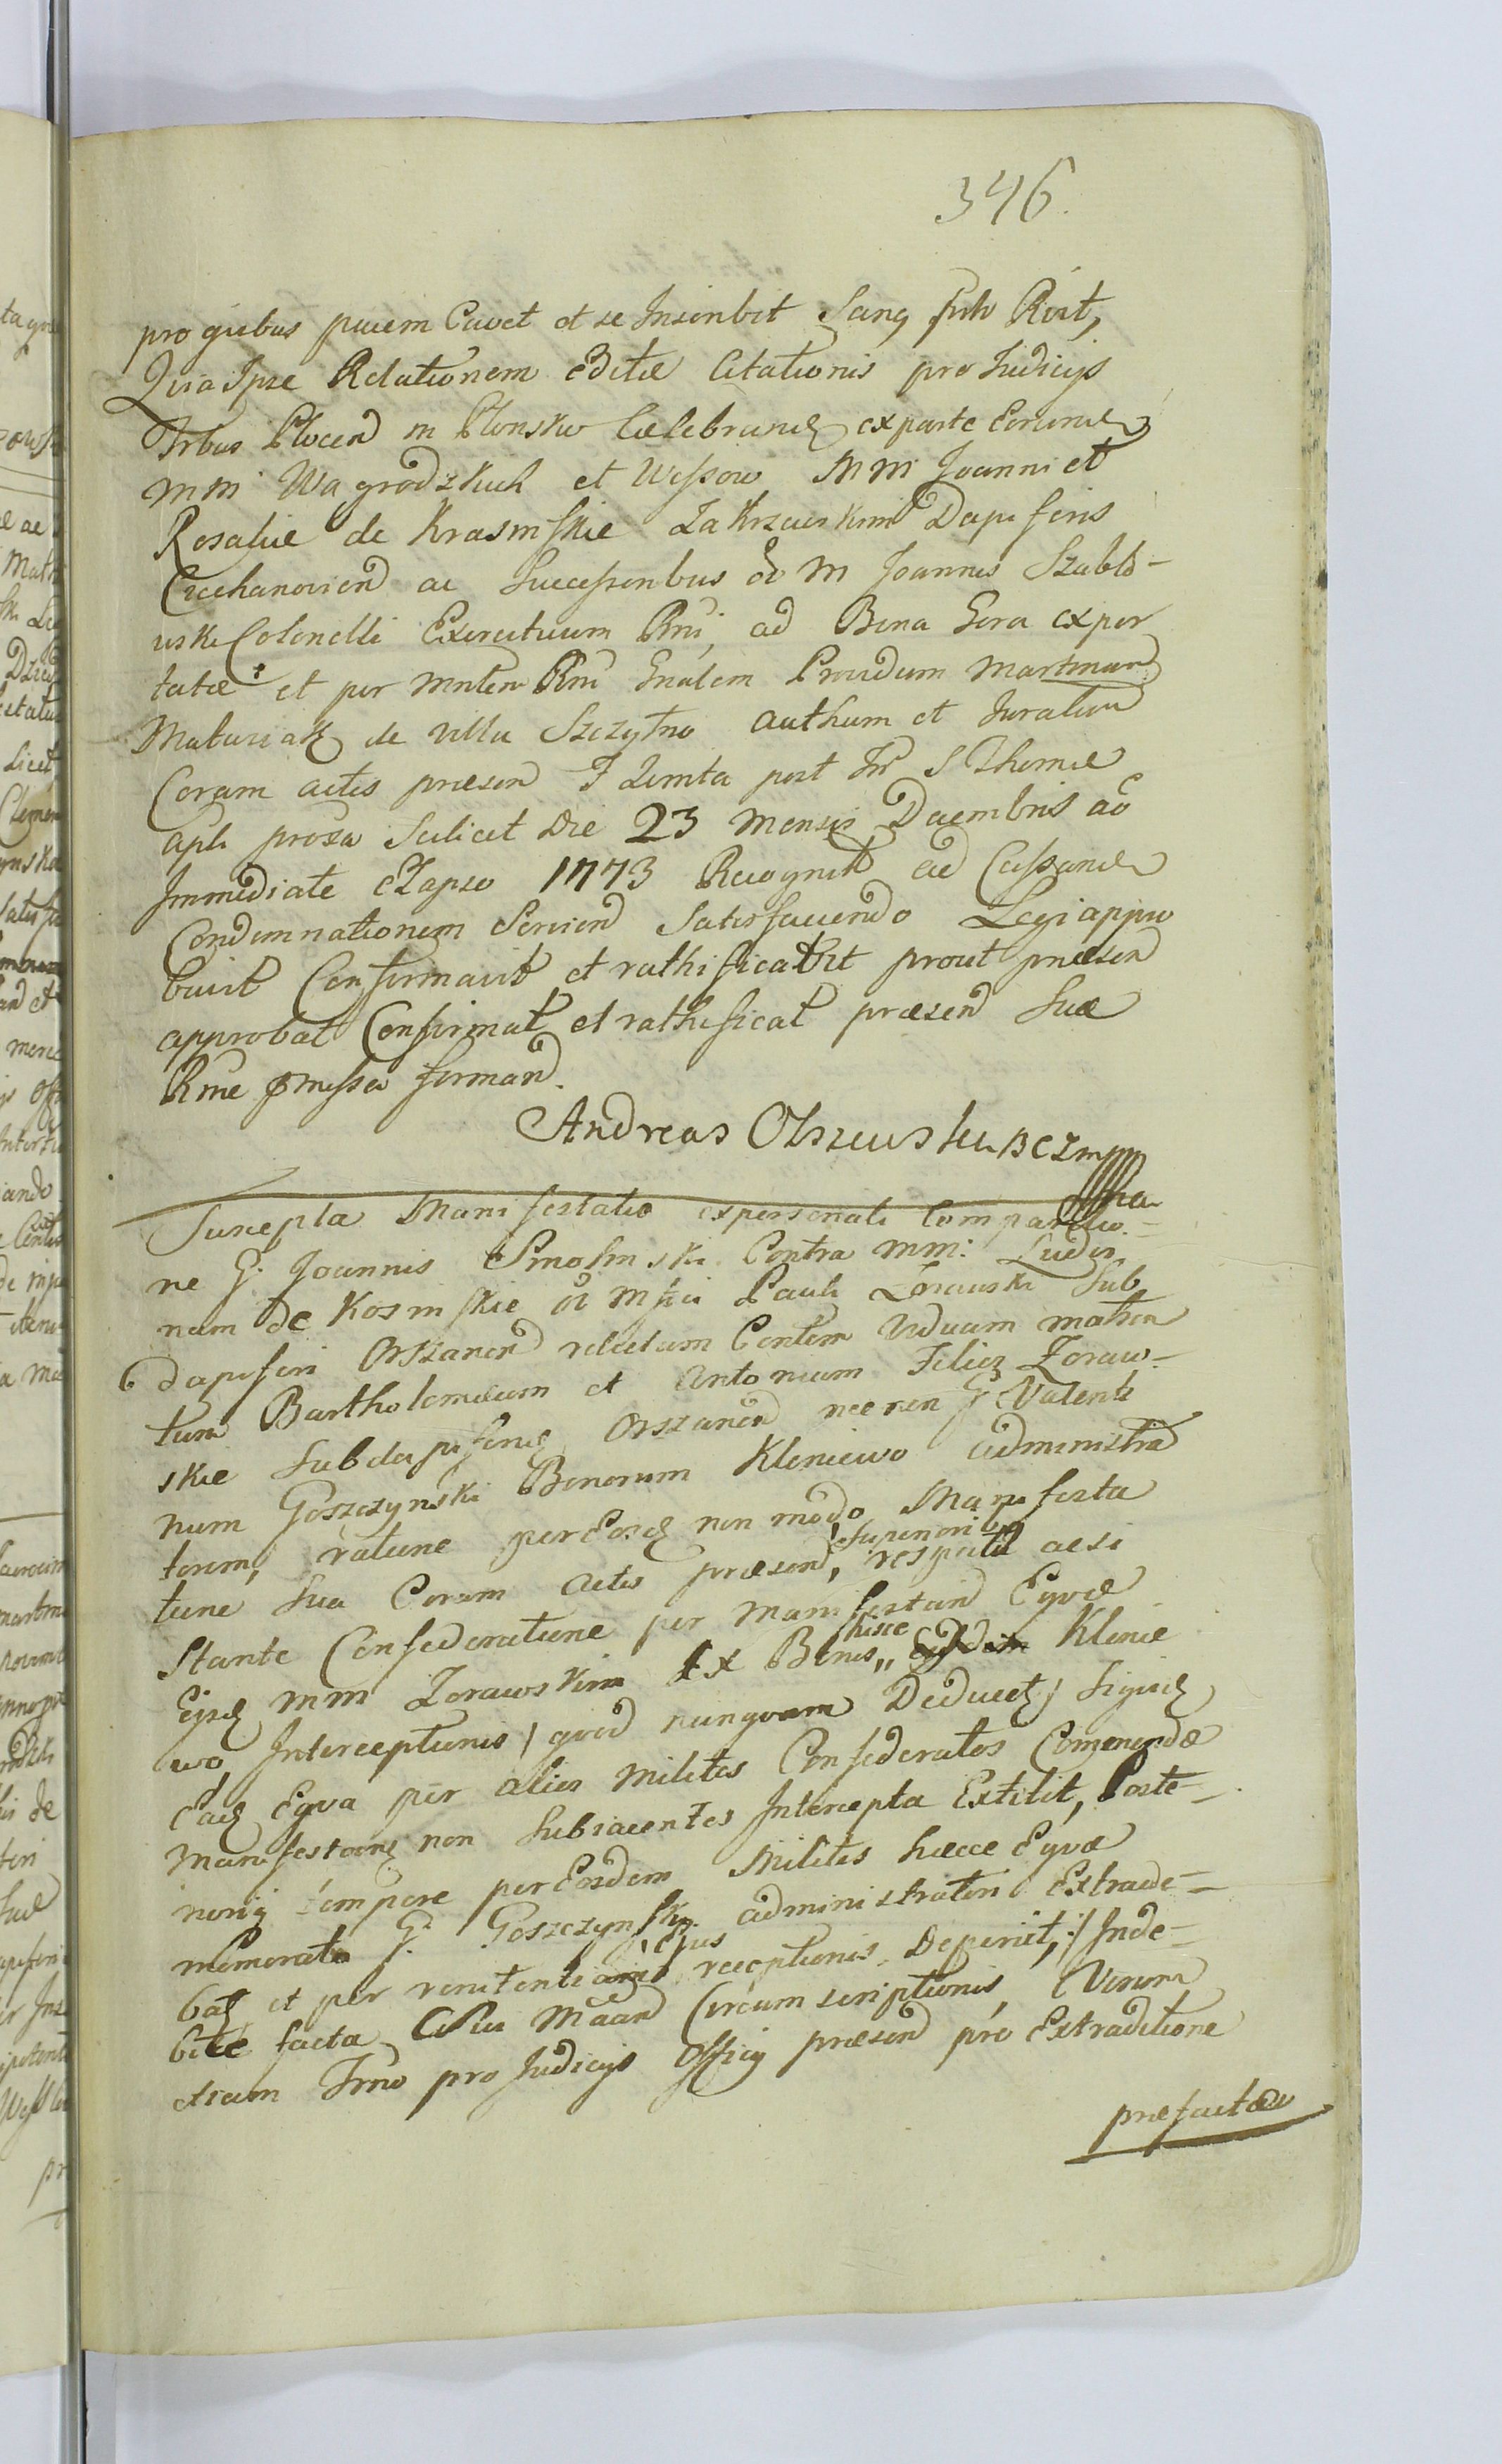 346.
pro quibus pacem Cavet et se Inscribit
Quia Ipse Relationem editæ Citationis pro Judicijs
Trbus Plocen in Plonsko Celebrand ex parte
MM Wagrodzkich et Wessow MM Joanni et
Rosaliæ de Krasinskie Zakrzewskim Dapiferis
Ciechanovien ac Successoribus ol M Joannis Szablo-
wski Colonelli Exercituum Rni, ad Bona Gora expor
tatæ et per Mnlem Rni Gnalem Providum Martinum
Matusiak de villa Szczytno authum et Juratum
Coram actis præsen F 2 post Fm S Thomæ
apli proxa Scilicet Die 23 Mensis Decembris ao
Immediate Elapso 1773 Recognit ad Cassand
Condemnationem Servien Satisfaciendo Legi appro
bavit Confirmavit et rathificavit prout præsen
approbat Confirmat et rathificat præsen Suæ
Rnne pmissa forman.
Andreas Olszewski BCZ mpp
Suscepta Manifestatio ex personali Comparitio-
ne G. Joannis Smolinski Contra MM: Ludo
nam de Kosinskie ol Mfci Pauli Zorawski Sub
dapiferi Orszanen relictam Contem Viduam matrem
tum Bartholomæum et Antonium Filios Zoraw-
skie Subdapiferid Orszanen nec non G Valenti
num Goszczynski Bonorum Kleniewo administra
torem, ratione per Eosd non modo Manifesta
tione Sua Coram Actis præsen, Superiori respectu acsi
Stante Confederatione per Manifestan Eqvæ
Ejsd MM Zorawskim Ex Bonis hisce Klenie
wo Interceptionis / quod nunqvam Deducet / Siquid
Ead Eqva per alios Milites Confederatos Comendæ
Manifestan non Subiacentes Intercepta Extitit, Poste-
riori tempore per Eosdem Milites hæcce Eqva
memorato G. Goszczynski administratori Extrade-
bat et per renitentiam ejus receptionis Deperiit, / Inde-
bite facta Circumscriptionis Verum
etiam Trno pro Judicijs Officij præsen pro Extraditione
præfactæ